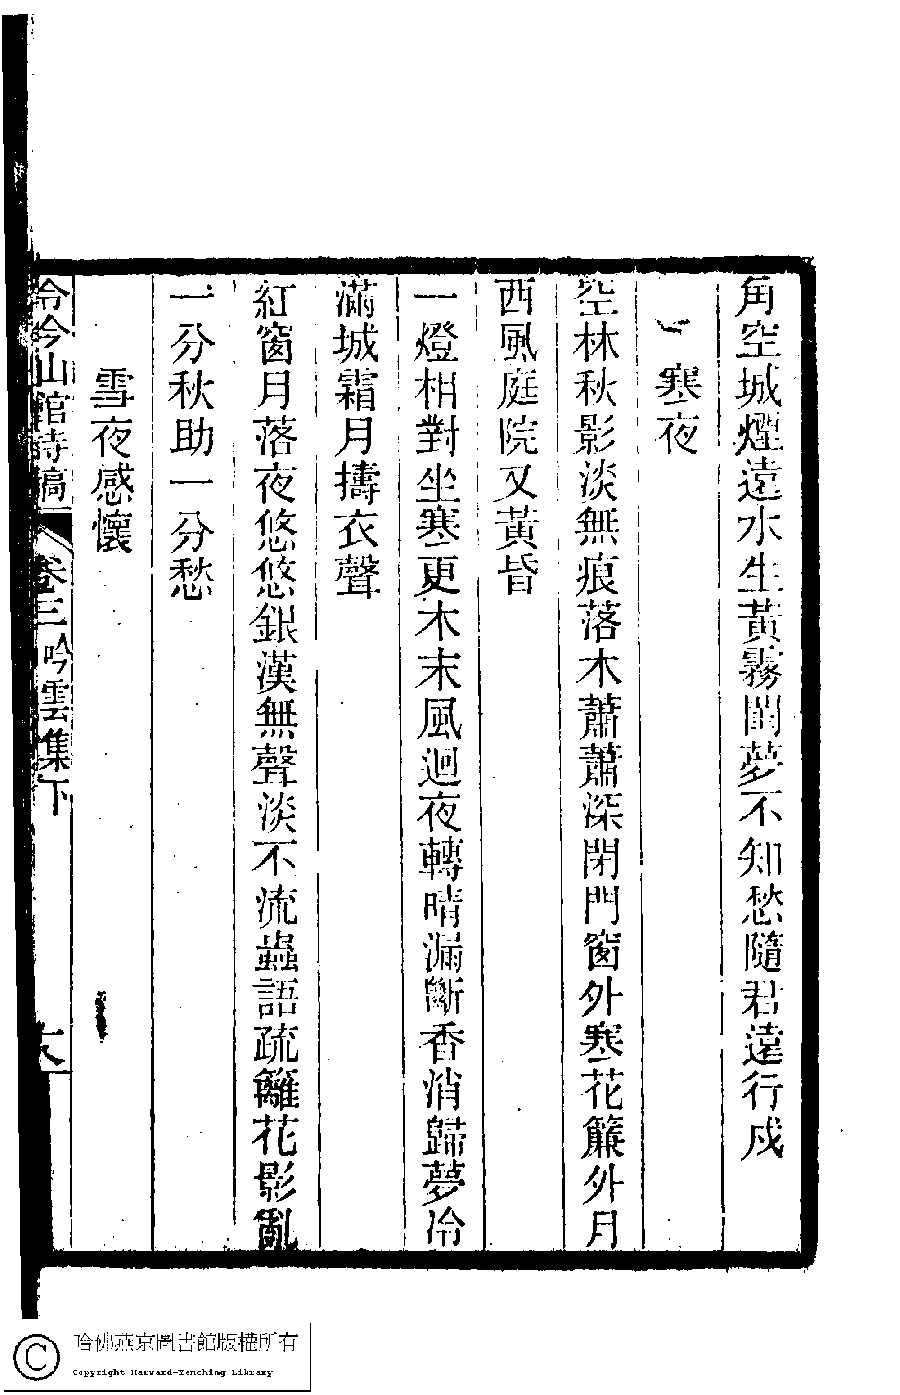 角空城煙遠水生黃霧閨夢不知愁隨君遠行戍
寒夜
空林秋影淡無痕落木蕭蕭深閉門窗外寒花簾外月
西風庭院又黃昏
一燈相對坐寒更木末風迴夜轉晴漏斷香消歸夢冷
滿城霜月擣衣聲
紅窗月落夜悠悠銀漢無聲淡不流蟲語疏籬花影亂
一分秋助一分愁
雪夜感懷
泠吟山館詩稿 卷三 吟雲集下
哈佛燕京圖書館版權所有
Copyright Harvard-Yenching Library